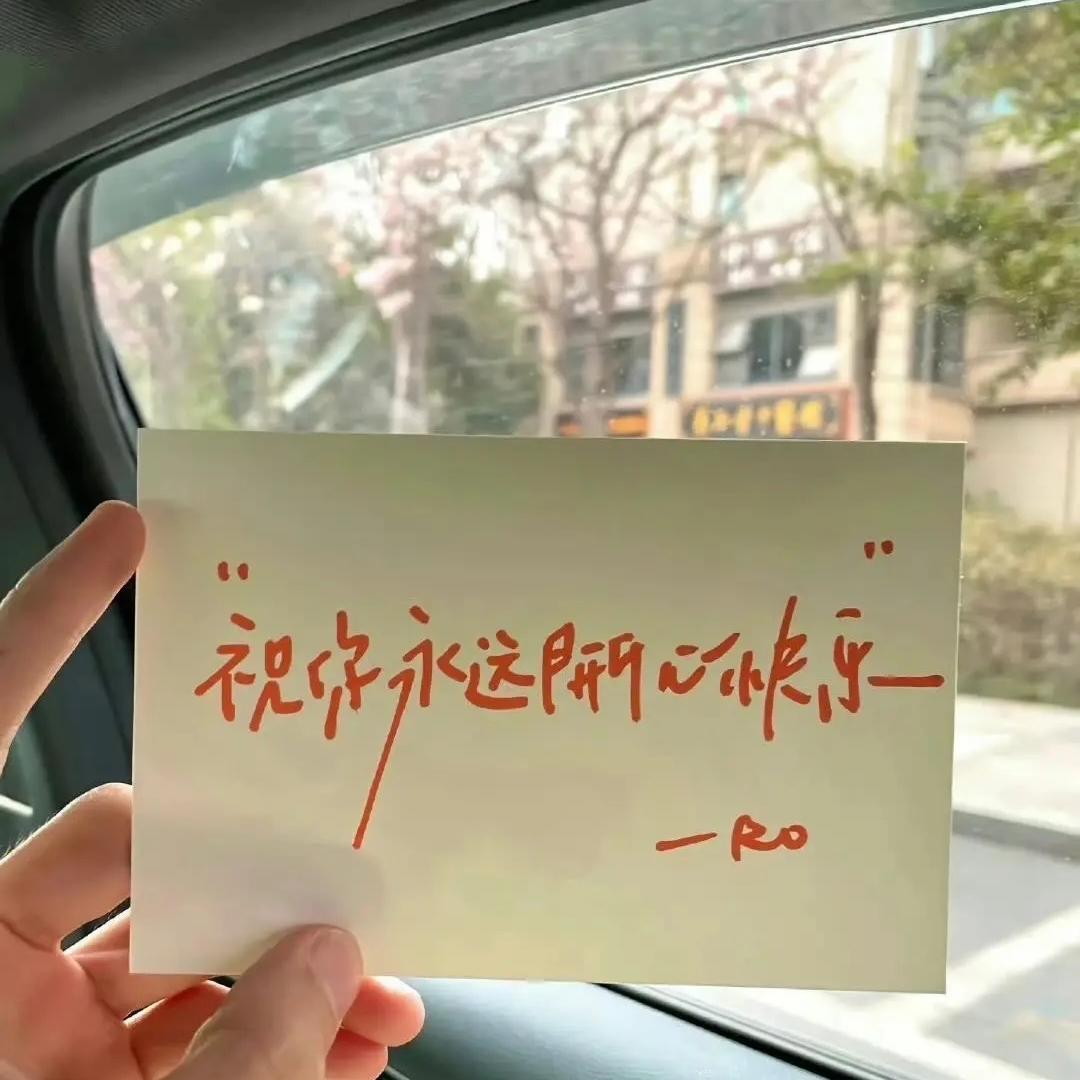 "祝你永远开心快乐"
—RO